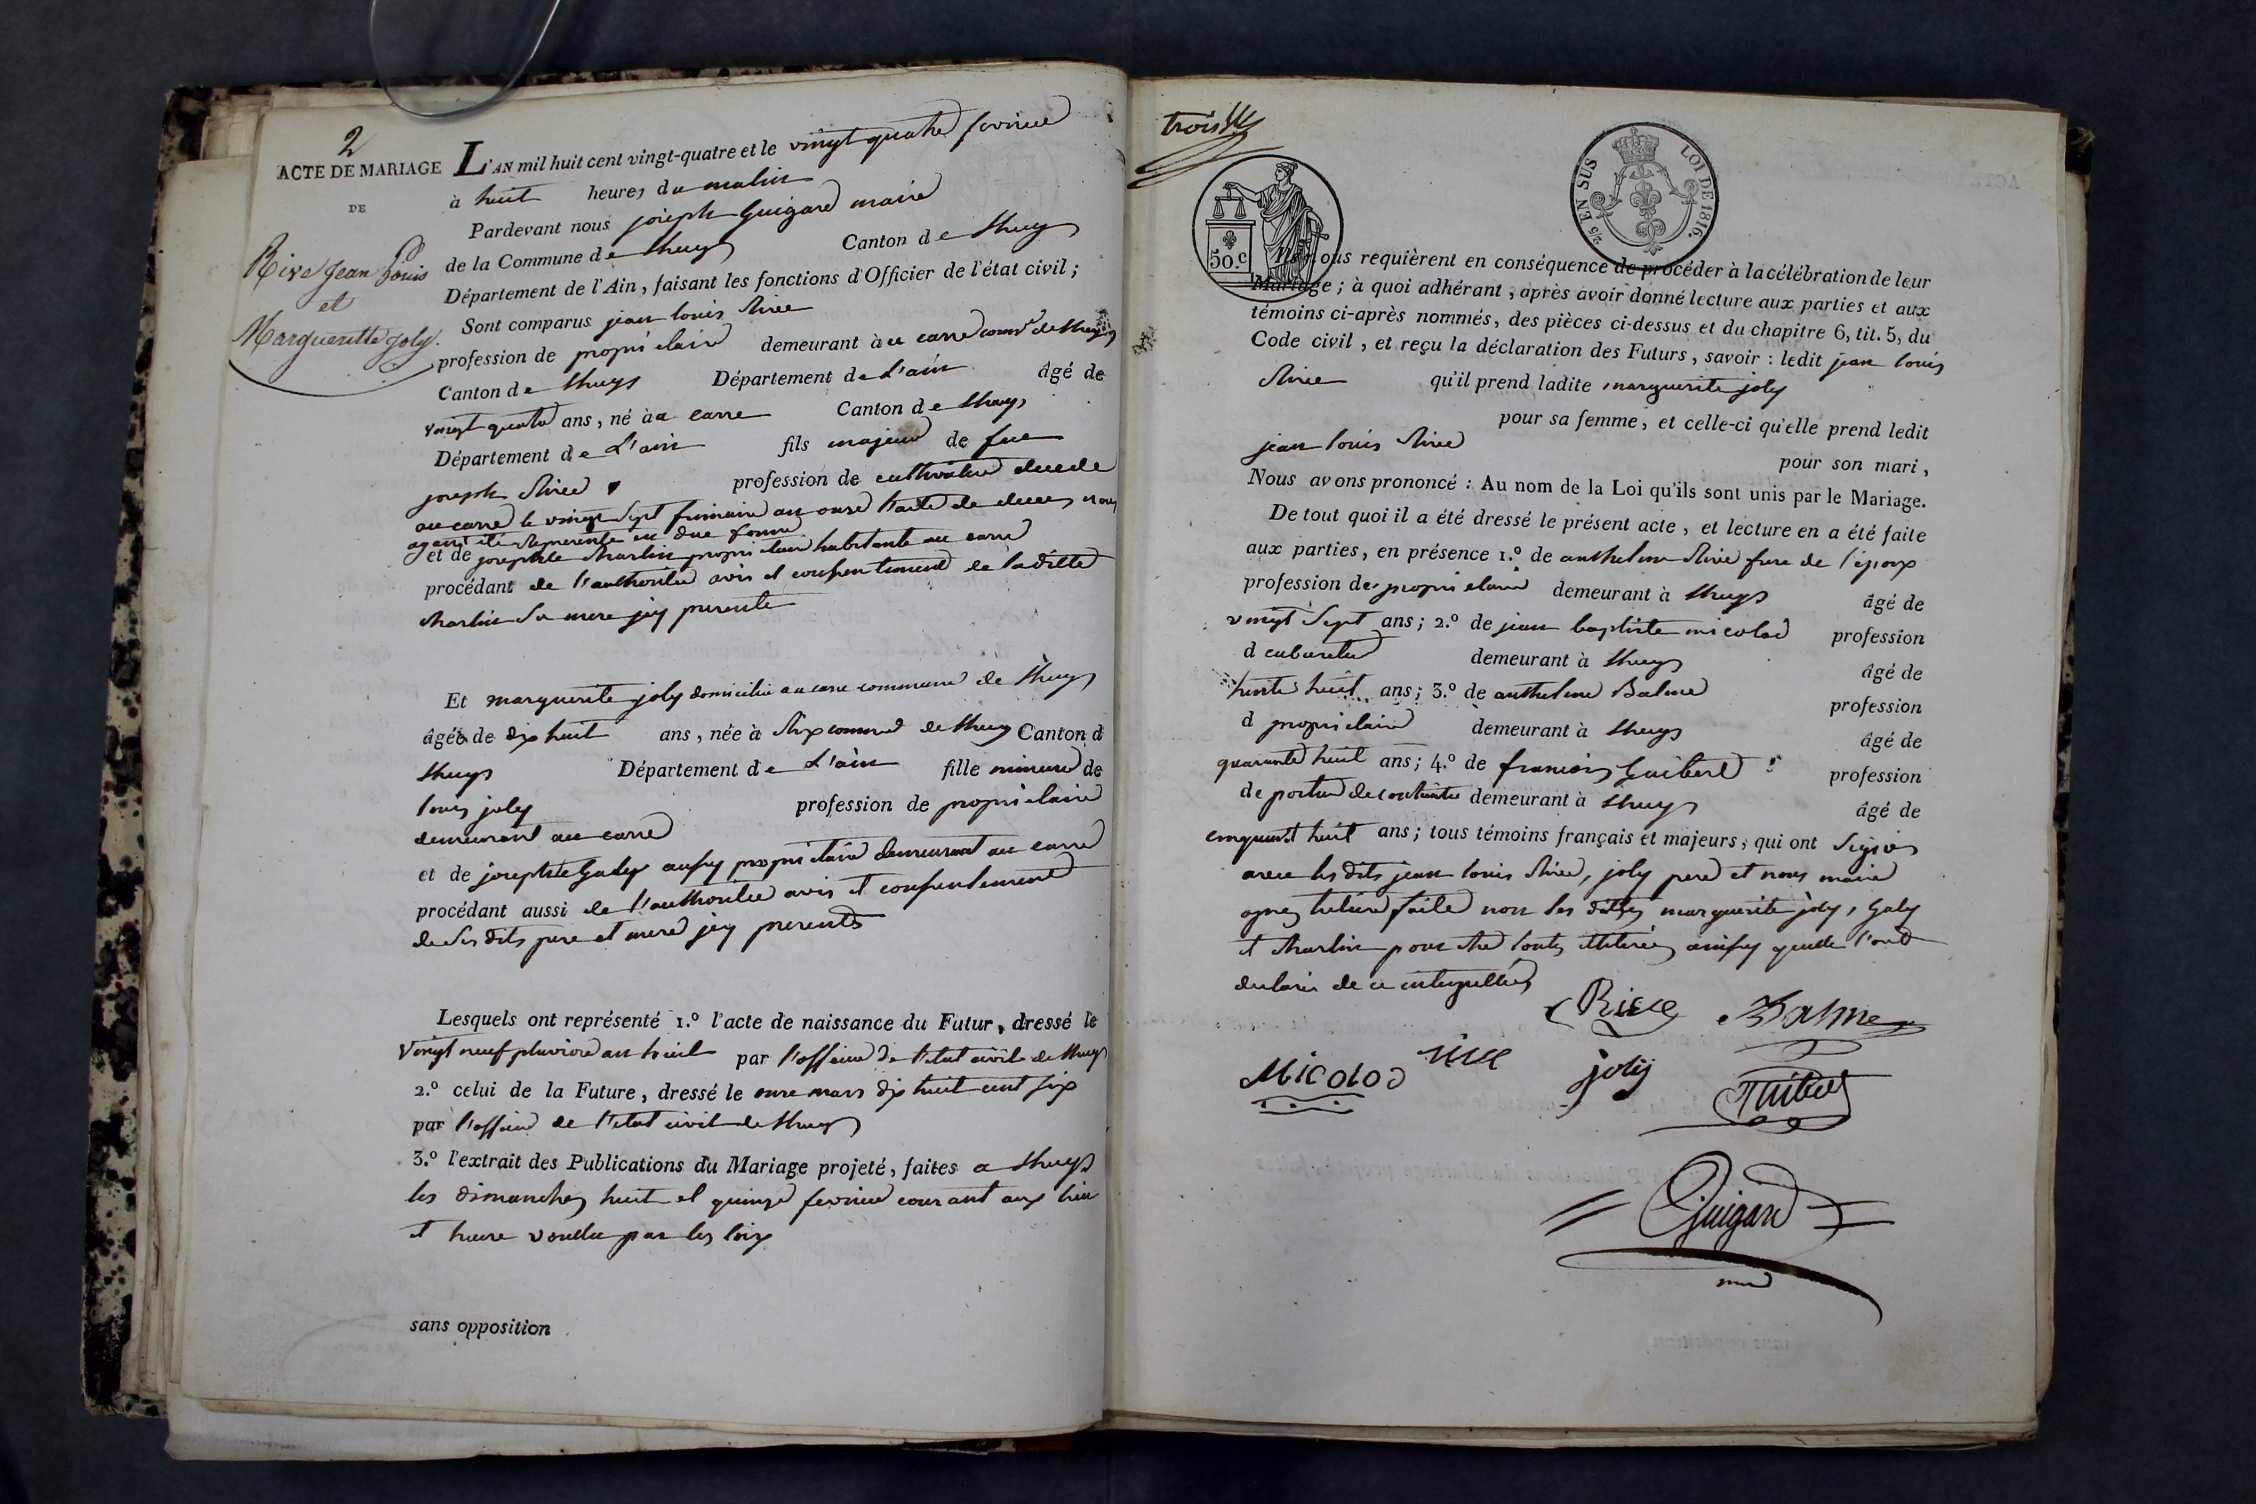 2
ACTE DE MARIAGE
DE
Rive Jean Louis
et
Margueritte Joly.
L'AN mil huit cent vingt-quatre et le vingt quatre fevrier
à huit heures du matin
Pardevant nous joseph Guigard maire
de la Commune de Lhuys Canton de Lhuys
Département de l'Ain, faisant les fonctions d'Officier de l'état civil;
Sont comparus jean louis Rive
profession de propriétaire demeurant à au carre comne de Lhuys
Canton de Lhuys Département de L'ain âgé de
vingt quatre ans, né à au carre Canton de Lhuys
Département de L'ain fils majeur de feu
joseph Rive profession de cultivateur decede
au carre le vingt sept frimaire an onze l'acte de deces nous
ayant été representé en due forme
et de josephte Marlin propriétaire habitante au carre
procédant de l'authorité avis et consentement de laditte
Marlin sa mere jcy presente
Et marguerite joly domiciliée au carre commune de Lhuys
âgée de dix huit ans, née à Rix commune de Lhuys Canton d
Lhuys Département de L'ain fille mineure de
louis joly profession de propriétaire
demeurant au carre
et de josephte Galy aussy propriétaire demeurant au carre
procédant aussi de l'authorité avis et consentement
de ses dits pere et mere jcy presents
Lesquels ont représenté 1.º l'acte de naissance du Futur, dressé le
Vingt neuf pluviose an huit par l'officier de l'etat civil de Lhuys
2.º celui de la Future, dressé le onze mars dix huit cent six
par l'officier de l'etat civil de Lhuys
3.º l'extrait des Publications du Mariage projeté, faites a Lhuys
les dimanches huit et quinze fevrier courant aux lieu
et heure voulu par les loix
sans opposition
trois
50.c
2/5 EN SUS LOI DE 1816.
Ils nous requièrent en conséquence de procéder à la célébration de leur
Mariage; à quoi adhérant, après avoir donné lecture aux parties et aux
témoins ci-après nommés, des pièces ci-dessus et du chapitre 6, tit. 5, du
Code civil, et reçu la déclaration des Futurs, savoir: ledit jean louis
Rive qu'il prend ladite marguerite joly
pour sa femme, et celle-ci qu'elle prend ledit
jean louis Rive pour son mari,
Nous avons prononcé: Au nom de la Loi qu'ils sont unis par le Mariage.
De tout quoi il a été dressé le présent acte, et lecture en a été faite
aux parties, en présence 1.º de anthelme Rive frere de l'époux
profession de propriétaire demeurant à Lhuys âgé de
vingt sept ans; 2.º de jean baptiste micolod profession
d cabaretier demeurant à Lhuys âgé de
trente huit ans; 3.º de anthelme Balme profession
d propriétaire demeurant à Lhuys âgé de
quarante huit ans; 4.º de francois Guibert profession
de porteur de contrainte demeurant à Lhuys âgé de
cinquante huit ans; tous témoins français et majeurs, qui ont signés
avec les dits jean louis Rive, joly pere et nous maire
apres lecture faite non les dittes marguerite joly, Galy
et Marlin pour etre toutes illiterées ainsy qu'elle l'ont
declarés de ce interpellées
Rive Balme
Micolod rive joly Guibert
Guigard